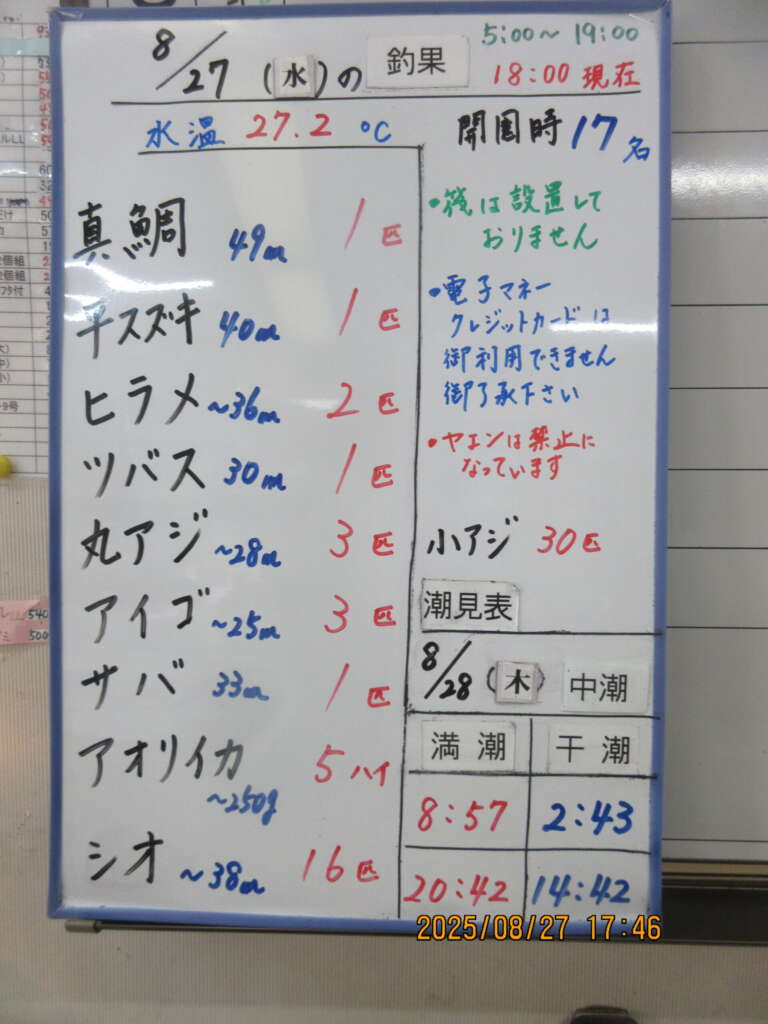 8/27 (水)の 釣果
5:00~19:00
18:00 現在
水温 27.2 ℃
開園時 17名
真鯛 49cm 1匹
平スズキ 40cm 1匹
ヒラメ ~36cm 2匹
ツバス 30cm 1匹
丸アジ ~28cm 3匹
アイゴ ~25cm 3匹
サバ 33cm 1匹
アオリイカ ~250g 5ハイ
シオ ~38cm 16匹
・筏は設置して
おりません
・電子マネー
クレジットカードは
御利用できません
御了承下さい
・ヤエンは禁止に
なっています
小アジ 30匹
潮見表
8/28 (木) 中潮
満潮 干潮
8:57 2:43
20:42 14:42
2025/08/27 17:46